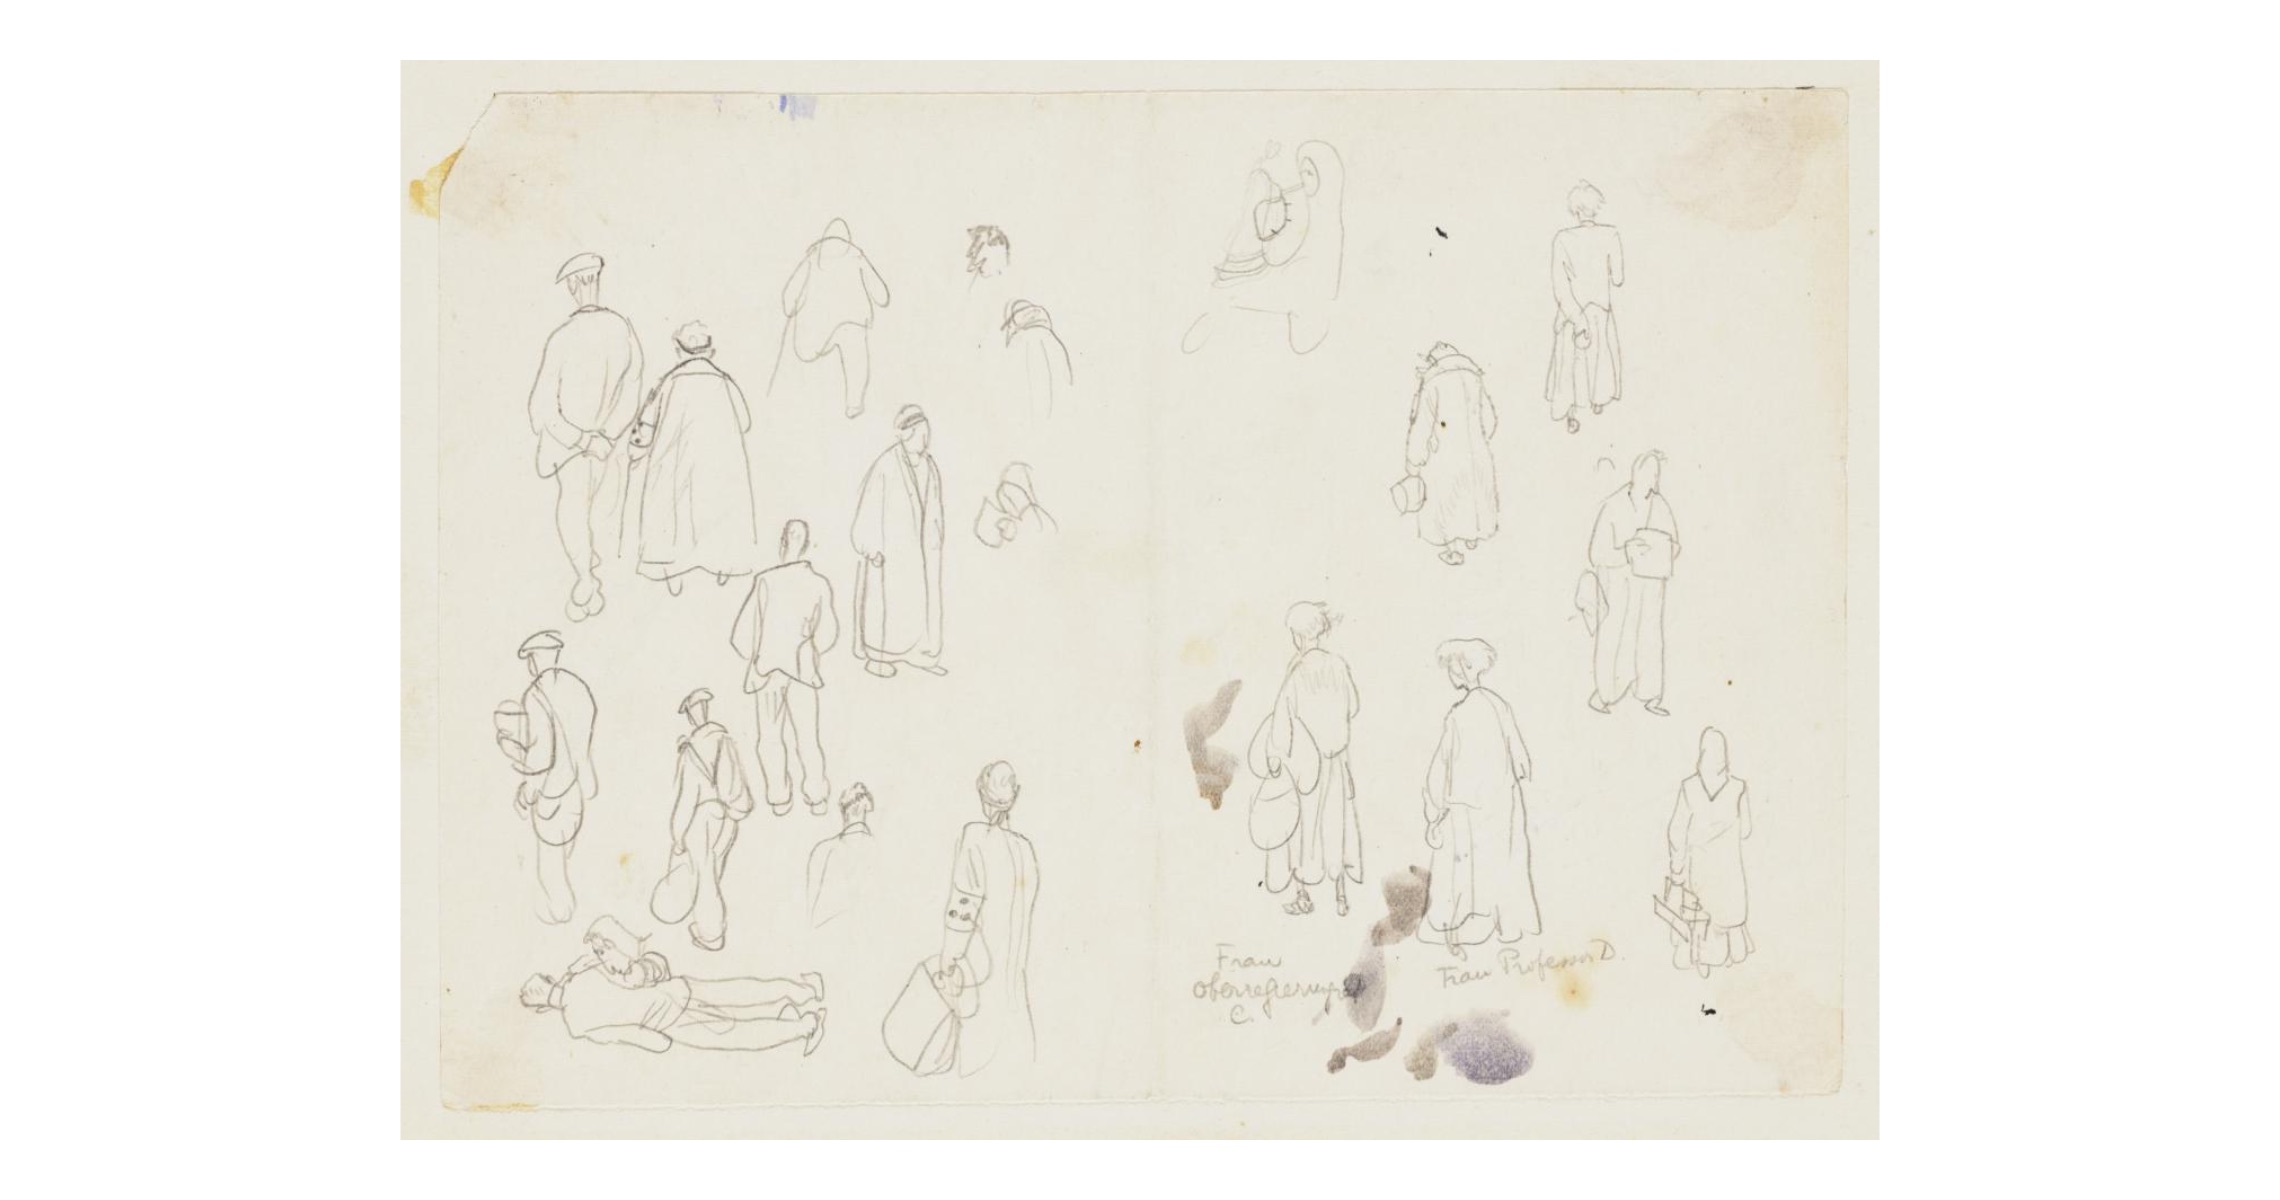 Frau
Oberregierungsr
C.
Frau Professor D.